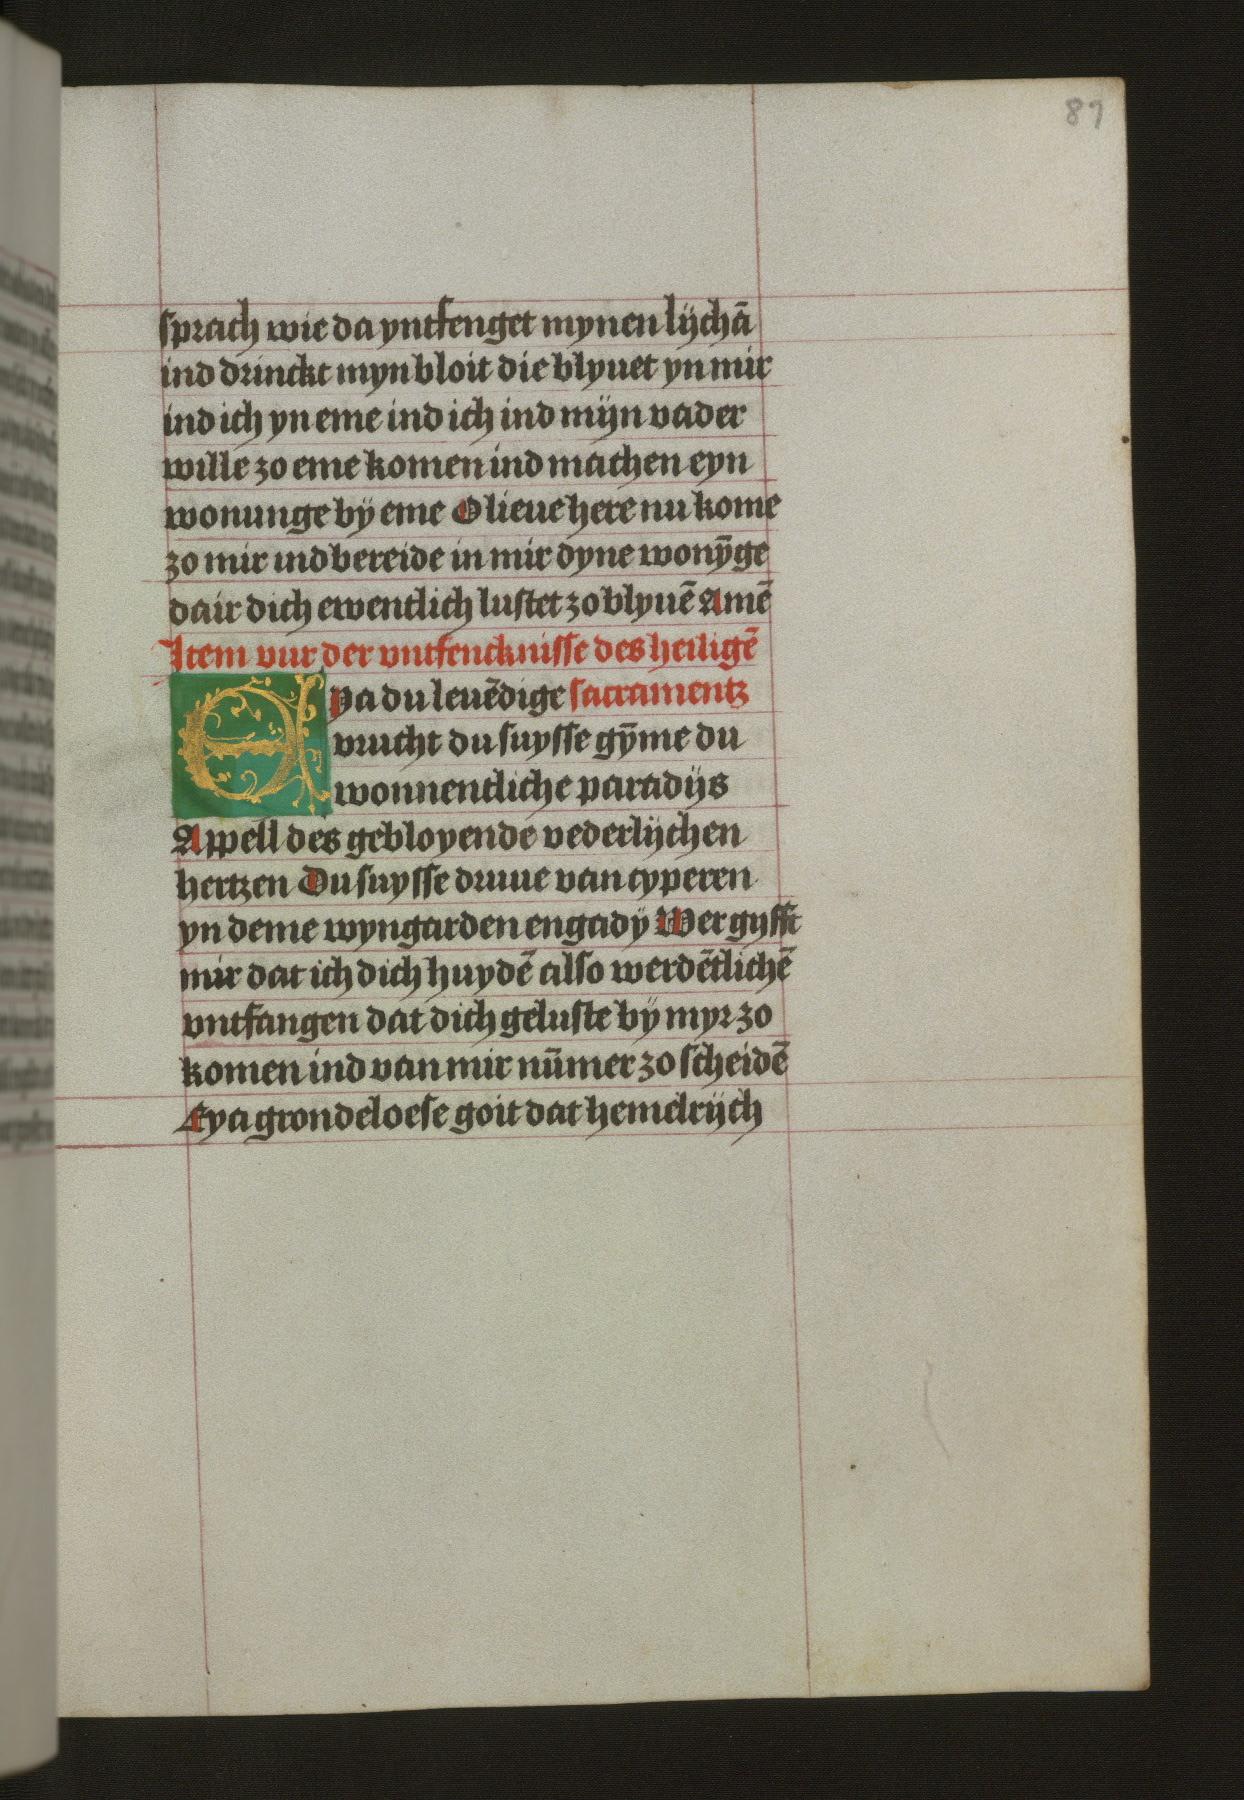 87
sprach wie da yntfenget mynen lijchā
ind drinckt myn bloit die blyuet yn mir
ind ich yn eme ind ich ind mijn vader
wille zo eme komen ind machen eyn
wonunge bÿ eme O lieue here nu kome
zo mir ind bereide in mir dyne wonȳge
dair dich ewentlich lustet zo blyuē Amē
Item vur der vntfencknisse des heiligē
Eya du leuēdige sacramentz
vrucht du suysse gȳme du
wonnentliche paradijs
Appell des gebloyende vederlijchen
hertzen Du suysse druue van cyperen
yn deme wyngarden engadÿ Wer gyfft
mir dat ich dich huydē also werdētlichē
vntfangen dat dich geluste bÿ myr zo
komen ind van mir nūmer zo scheidē
Eya grondeloese goit dat hemelrijch